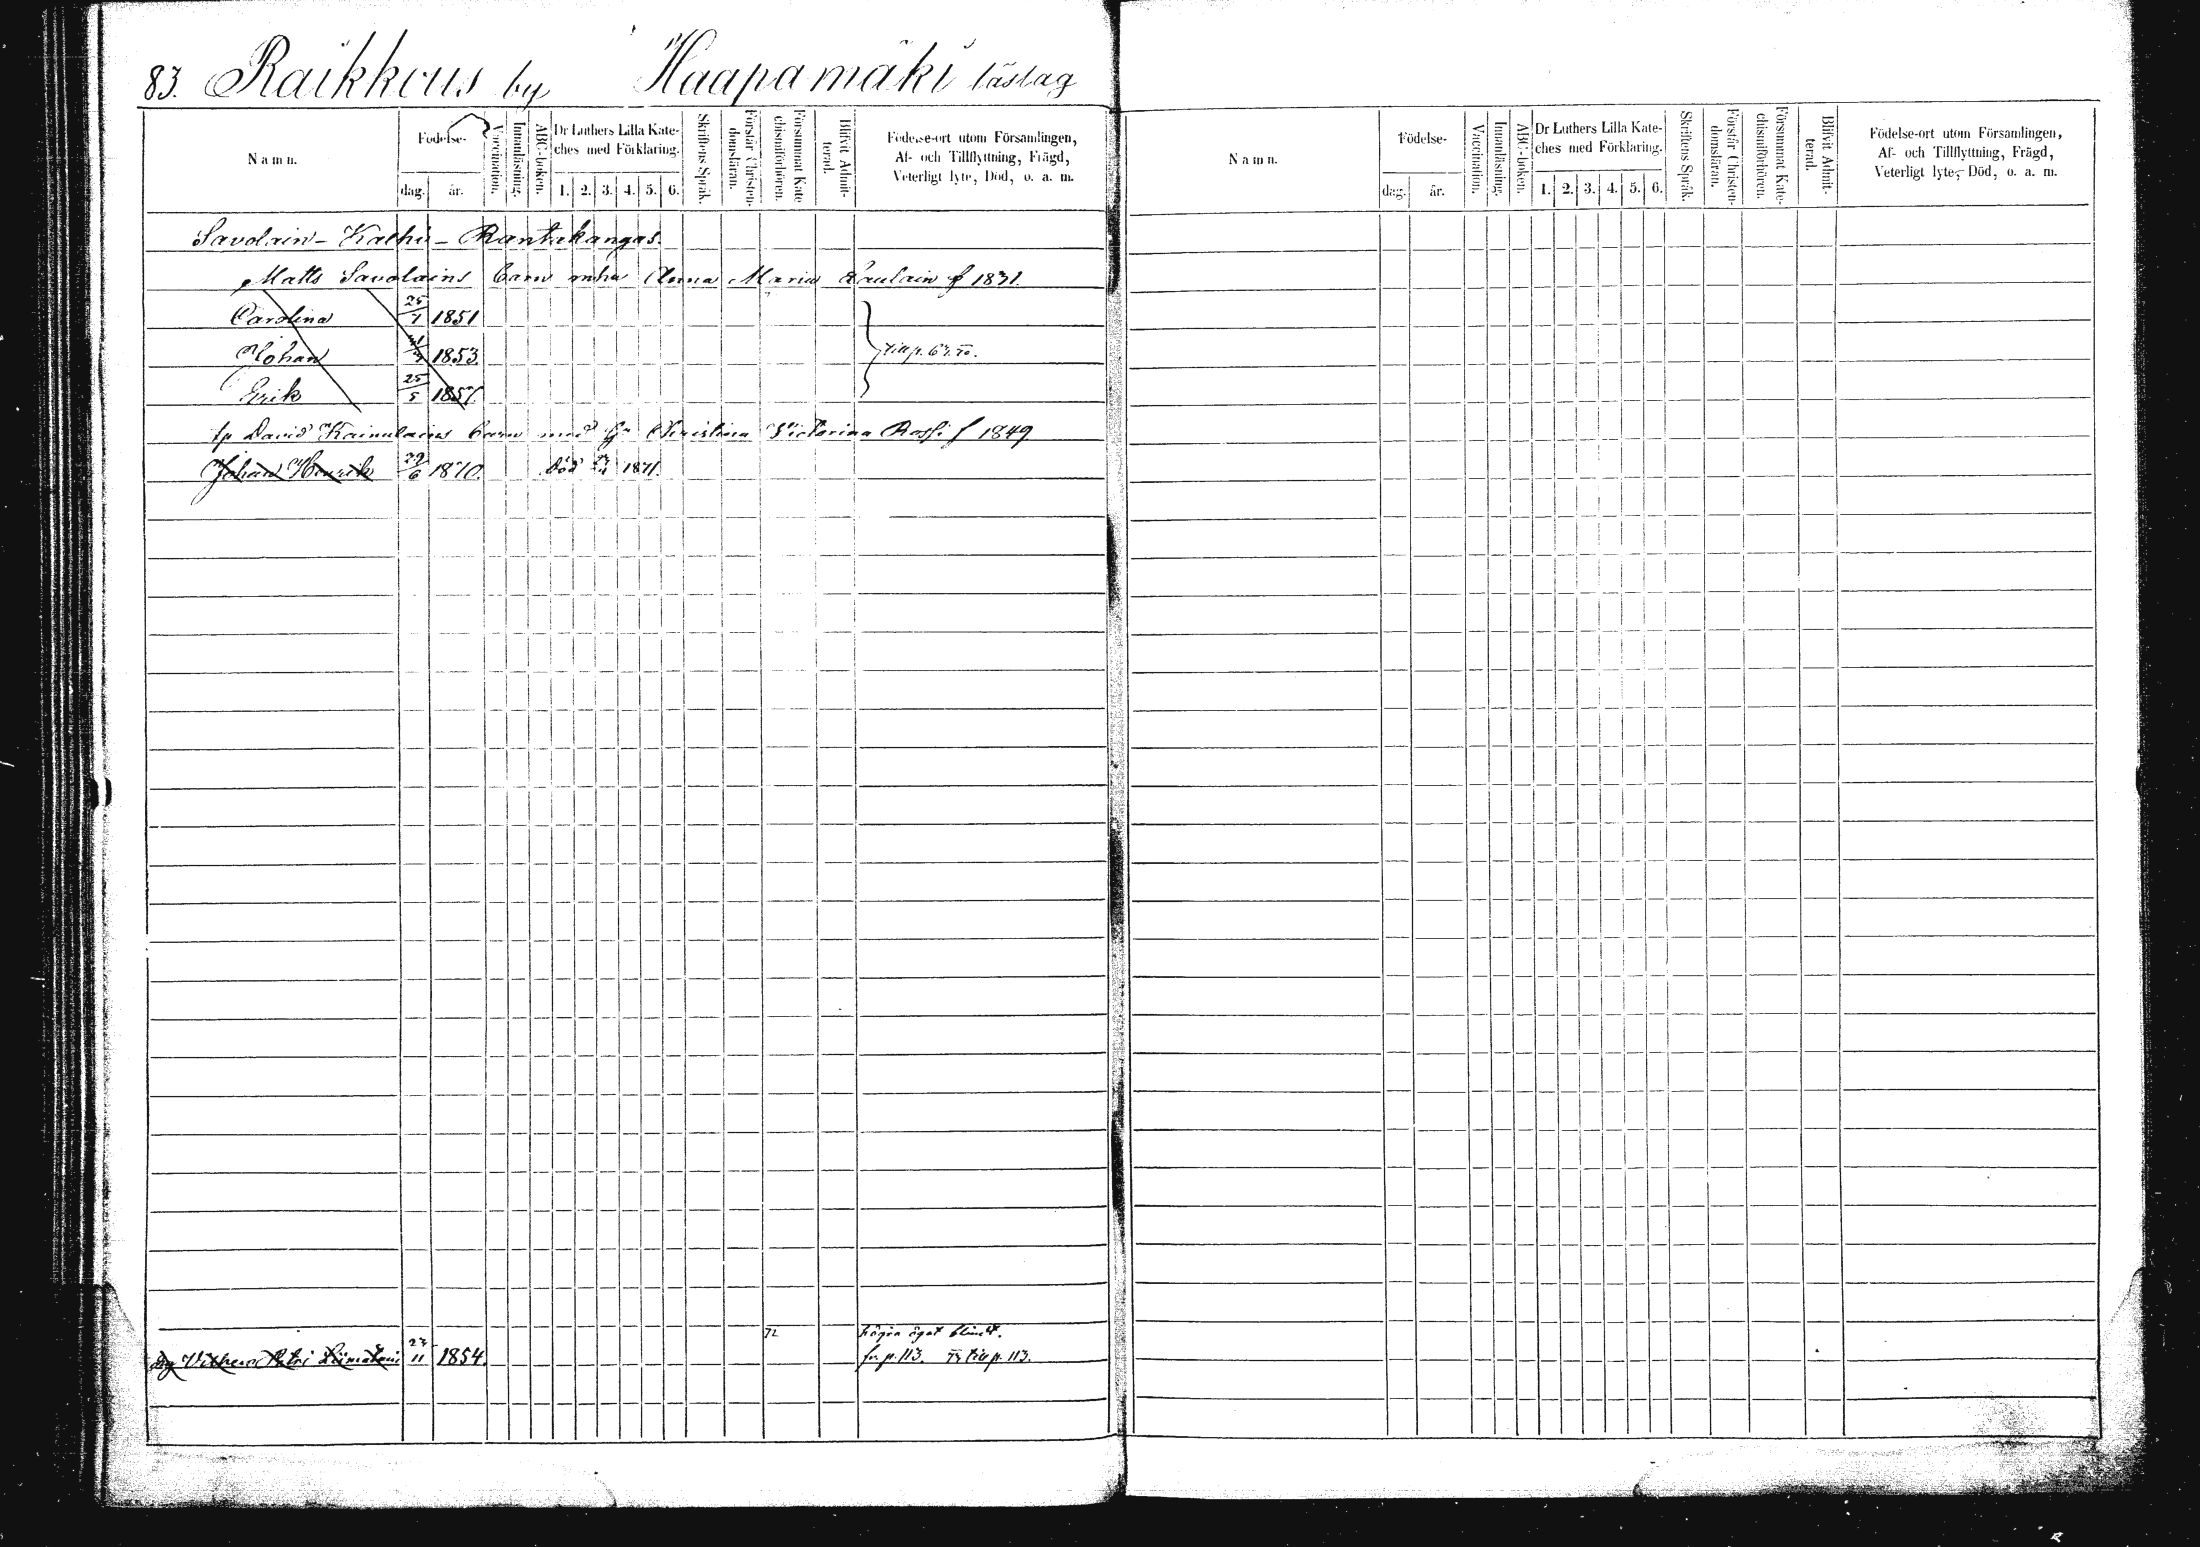 83. Raikkous by Haapamäki läslag
Namn.
Födelse-
dag. år.
Vaccination.
Innanläsning.
ABC-boken.
Dr Luthers Lilla Kate-
ches med Förklaring.
1. 2. 3. 4. 5. 6.
Skriftens Språk.
Förstår Christen-
domsläran.
Försummat Kate
chismiförhören.
Blifvit Admit-
terad.
Födelse-ort utom Församlingen,
Af- och Tillflyttning, Frägd,
Veterligt lyte, Död, o. a. m.
Savolain - Kathi - Rantakangas.
Matts Savolains barn mhu Anna Maria Paulain f 1831
Carolina 25/1 1851
Johan 1853
Erik 25/5 1857
till p. 67.70.
David Kainulains barn med Christina Victorina Rossi f 1849
Johan Henrik 29/6 1870. död 1871.
72 högra ögat blindt.
Petri Liimatain 27/11 1854. fr. p. 113. till p. 113.
Namn.
Födelse-
dag. år.
Vaccination.
Innanläsning.
ABC-boken.
Dr Luthers Lilla Kate-
ches med Förklaring.
1. 2. 3. 4. 5. 6.
Skriftens Språk.
Förstår Christen-
domsläran.
Försummat Kate-
chismiförhören.
Blifvit Admit-
terad.
Födelse-ort utom Församlingen,
Af- och Tillflyttning, Frägd,
Veterligt lyte, Död, o. a. m.